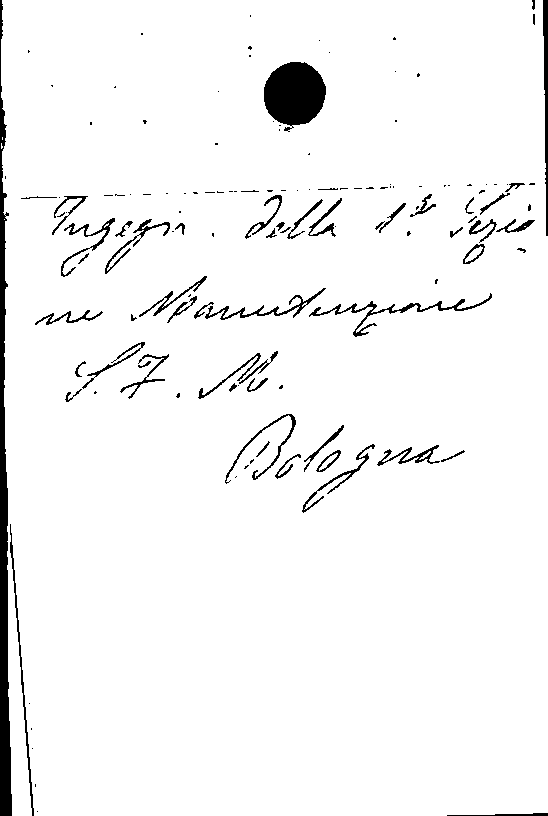 Ingegn. della 1ª Sezio-
ne Manutenzione
S. F. M.
Bologna